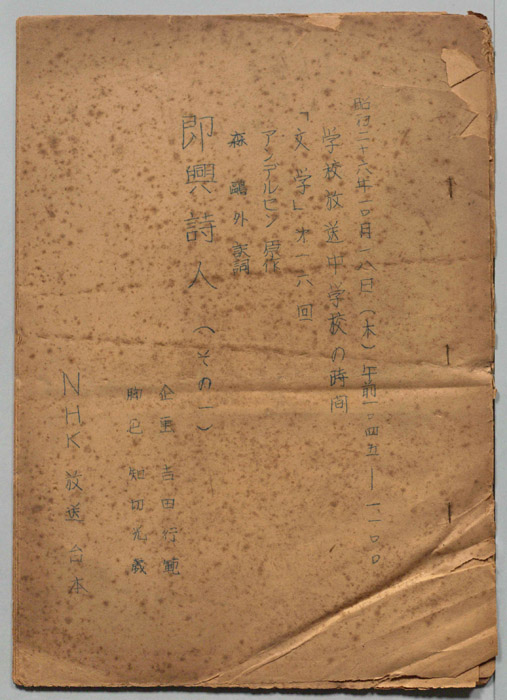 昭和二十六年一〇月一八日(木)午前一〇、四五—一一、〇〇
学校放送中学校の時間
「文学」才一六回
アンデルセン 原作
森 鷗 外 訳詞
即興詩人(その一)
企画 吉田行範
脚色 知切光歳
NHK 放送 台本